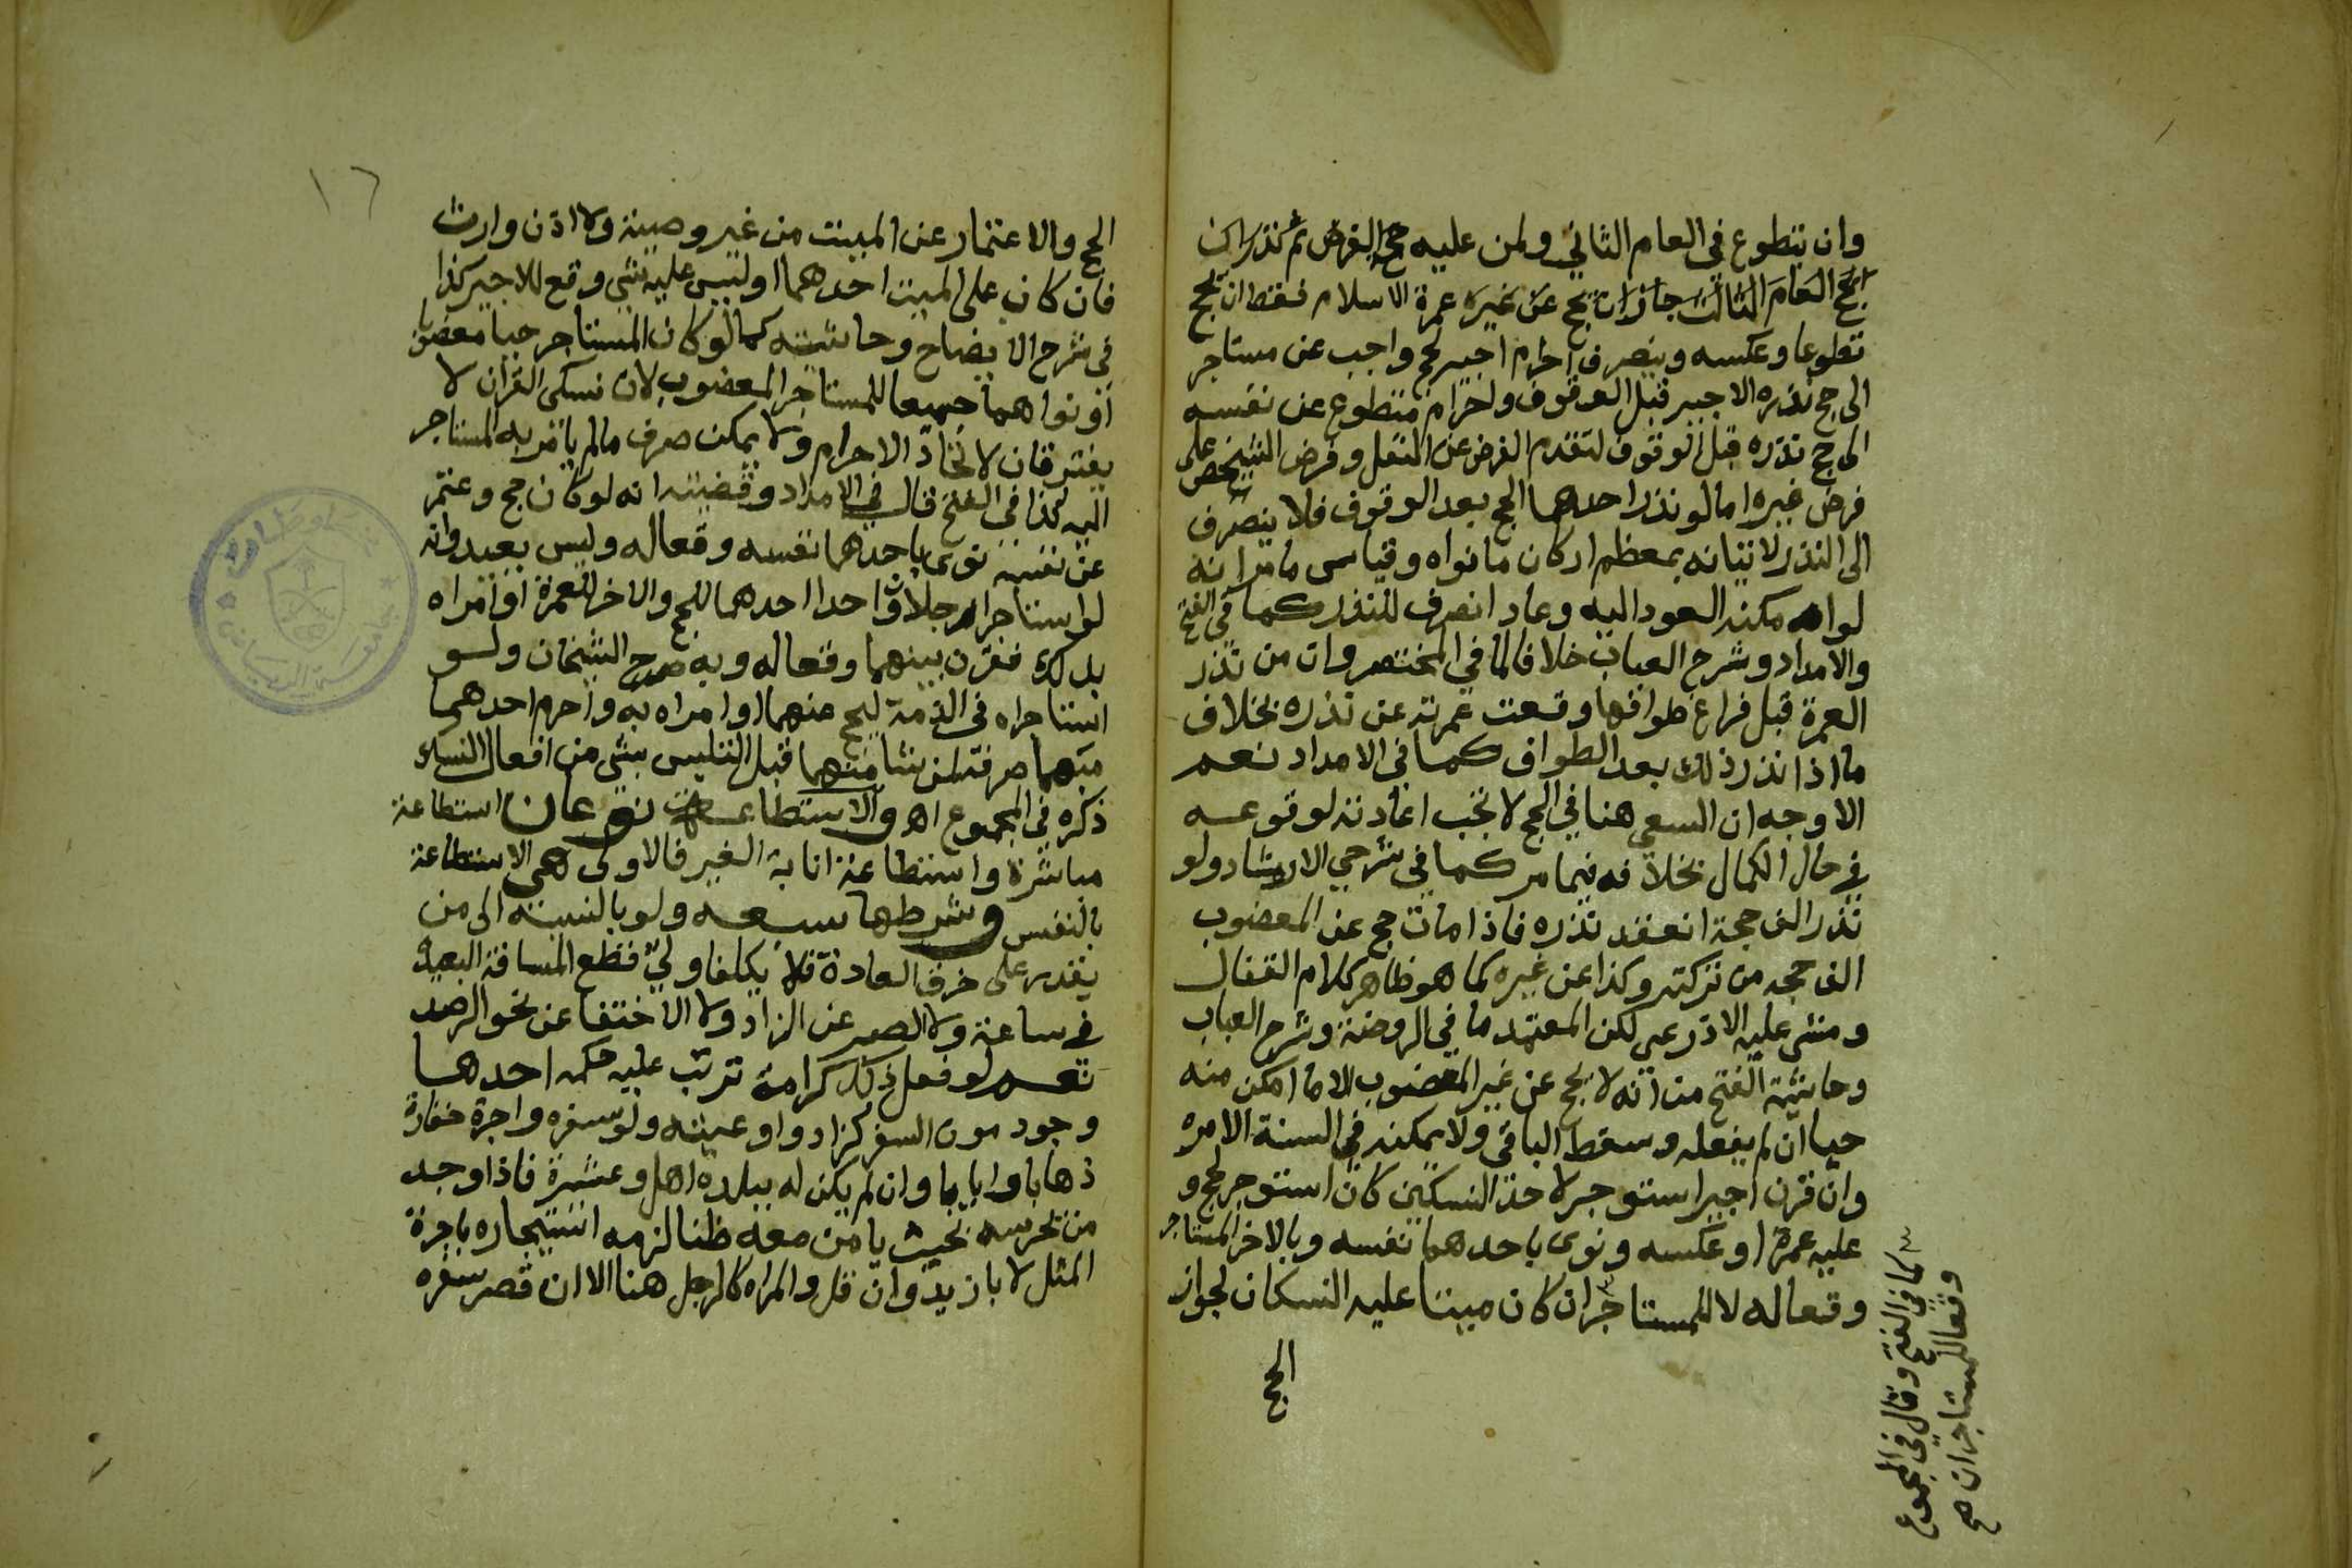 وان يتطوع في العام الثاني ولمن عليه حج الفرض ثم نذر ان
يحج العام الثالث جاز ان يحج عن غيره عمرة الاسلام فقط ان يحج
تطوعا وعكسه وينصرف احرام اجير لحج واجب عن مستاجر
الى حج نذره الاجير قبل الوقوف واحرام متطوع عن نفسه
الى حج نذره قبل الوقوف لتقدم الفرض عن النفل وفرض الشخص على
فرض غيره اما لو نذر احدهما الحج بعد الوقوف فلا ينصرف
الى النذر لاتيانه بمعظم اركان ما نواه وقياس ما مر انه
لو امكنه العود اليه وعاد انصرف للنذر كما في الفتح
والامداد وشرح العباب خلافا لما في المختصر وان من نذر
العمرة قبل فراغ طوافها وقعت عمرته عن نذره بخلاف
ما اذا نذر ذلك بعد الطواف كما في الامداد نعم
الاوجه ان السعي هنا في الحج لا تجب اعادته لوقوعه
في حال الكمال بخلافه فيما مر كما في شرحي الارشاد ولو
نذر الف حجة انعقد نذره فاذا مات حج عن المعضوب
الف حجه من تركته وكذا عن غيره كما هو ظاهر كلام القفال
ومشى عليه الاذرعي لكن المعتمد ما في الروضة وشرح العباب
وحاشية الفتح من انه لا يحج عن غير المعضوب الا ما امكن منه
حيا ان لم يفعله وسقط الباقي ولا يمكنه في السنة الا مره
وان قرن اجير استوجر لاحد النسكين كان استوجر لحج و
عليه عمرة او عكسه ونوى باحدهما نفسه وبالاخر المستاجر
وقعا له لا للمستاجر ان كان ميتا عليه النسكان لجواز
الحج
كما في الفتح وقال في المجموع
وقعا للمستاجر ان صح
١٦
الحج والاعتمار عن الميت من غير وصية ولا اذن وارث
فان كان على الميت احدهما او ليس عليه شي وقع للاجير كذا
في شرح الايضاح وحاشيته كما لو كان المستاجر حيا معضوبا
او نواهما جميعا للمستاجر المعضوب لان نسكي القران لا
يفترقان لاتحاد الاحرام ولا يمكن صرف ما لم يامر به المستاجر
اليه كذا في الفتح قال في الامداد وقضيته انه لو كان حج وعتمر
عن نفسه نوى باحدهما نفسه وقعا له وليس ببعيد وانه
لو استاجرا رجلان واحدا احدهما للحج والاخر للعمرة او امراه
بذلك فقرن بينهما وقعا له وبه صرح الشيخان ولو
استاجراه في الذمة ليحج عنهما او امراه به واحرم احدهما
منهما صرفه لمن شا منهما قبل التلبس بشي من افعال النسك
ذكره في المجموع اهـ والاستطاعة نوعان استطاعة
مباشرة واستطاعة انابة الغير فالاولى هي الاستطاعة
بالنفس وشرطها سبعه ولو بالنسبة الى من
يقدر على خرق العادة فلا يكلف ولي قطع المسافة البعيدة
في ساعة ولا الصبر عن الزاد ولا الاختفا عن نحو الرصد
نعم لو فعل ذلك كرامة ترتب عليه حكمه احدها
وجود مون السفر كزاد واوعيته ولو سفره واجرة خفارة
ذهابا وايابا وان لم يكن له ببلده اهل وعشيرة فاذا وجد
من يحرسه بحيث يامن معه ظنا لزمه استيجاره باجرة
المثل لا بازيد وان قل والمراه كالرجل هنا الا ان قصر سفره